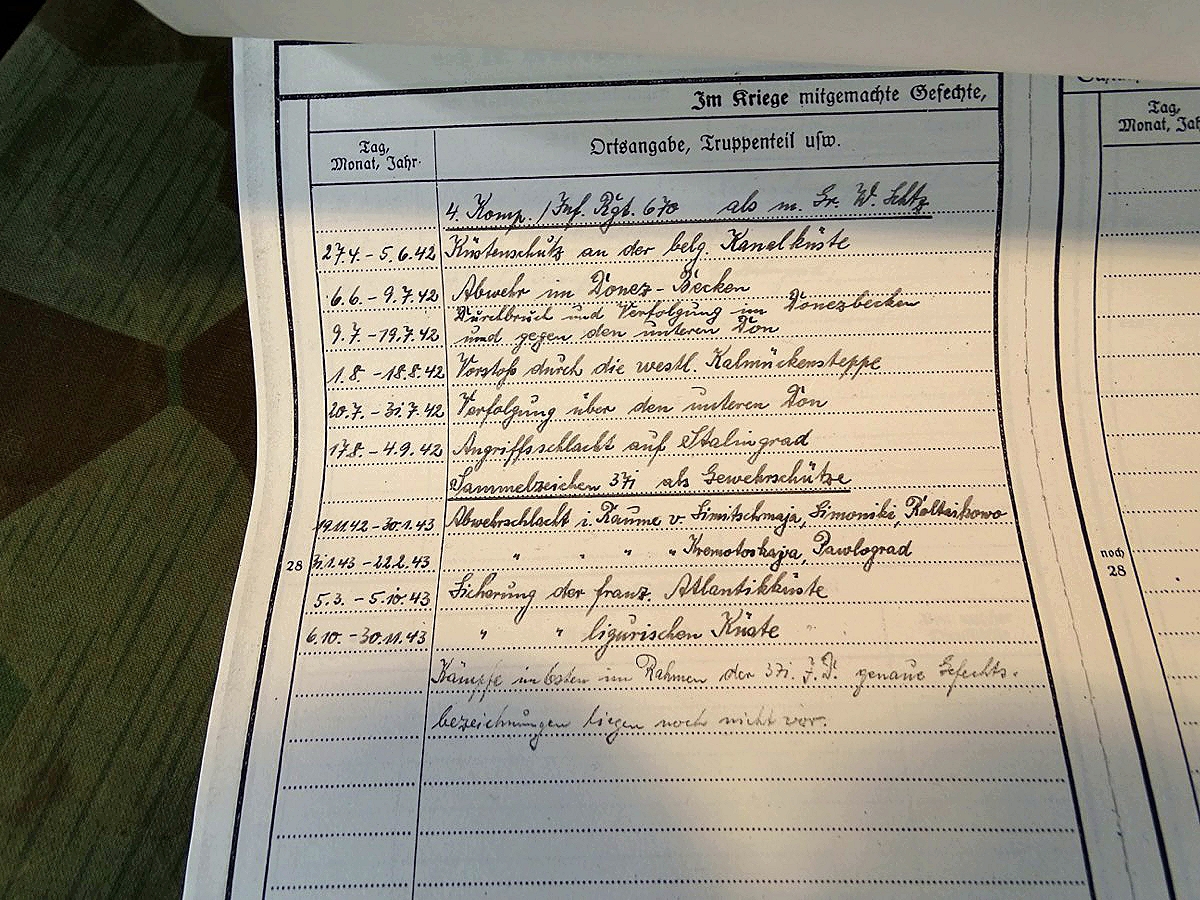 Im Kriege mitgemachte Gefechte,
Tag,
Monat, Jahr
Ortsangabe, Truppenteil usw.
4. Komp. / Inf. Rgt. 670 als m. Gr. W. Schtz
27.4. - 5.6.42 Küstenschutz an der belg. Kanalküste
6.6. - 9.7.42 Abwehr im Donez-Becken
Durchbruch und Verfolgung im Donezbecken
9.7. - 19.7.42 und gegen den unteren Don
1.8. - 18.8.42 Vorstoß durch die westl. Kalmückensteppe
20.7. - 31.7.42 Verfolgung über den unteren Don
17.8. - 4.9.42 Angriffsschlacht auf Stalingrad
Sammelzeichen 371 als Gewehrschütze
19.11.42 - 30.1.43 Abwehrschlacht i. Raume v. Simitschmaja, Simoniki,
28 31.1.43 - 22.2.43 " " " " Kremotoskaja, Pawlograd
5.3. - 5.10.43 Sicherung der franz. Atlantikküste
6.10. - 30.11.43 " " ligurischen Küste
Kämpfe im Osten im Rahmen der 371. J.D. genaue Gefechts-
bezeichnungen liegen noch nicht vor.
Tag,
Monat,
noch
28